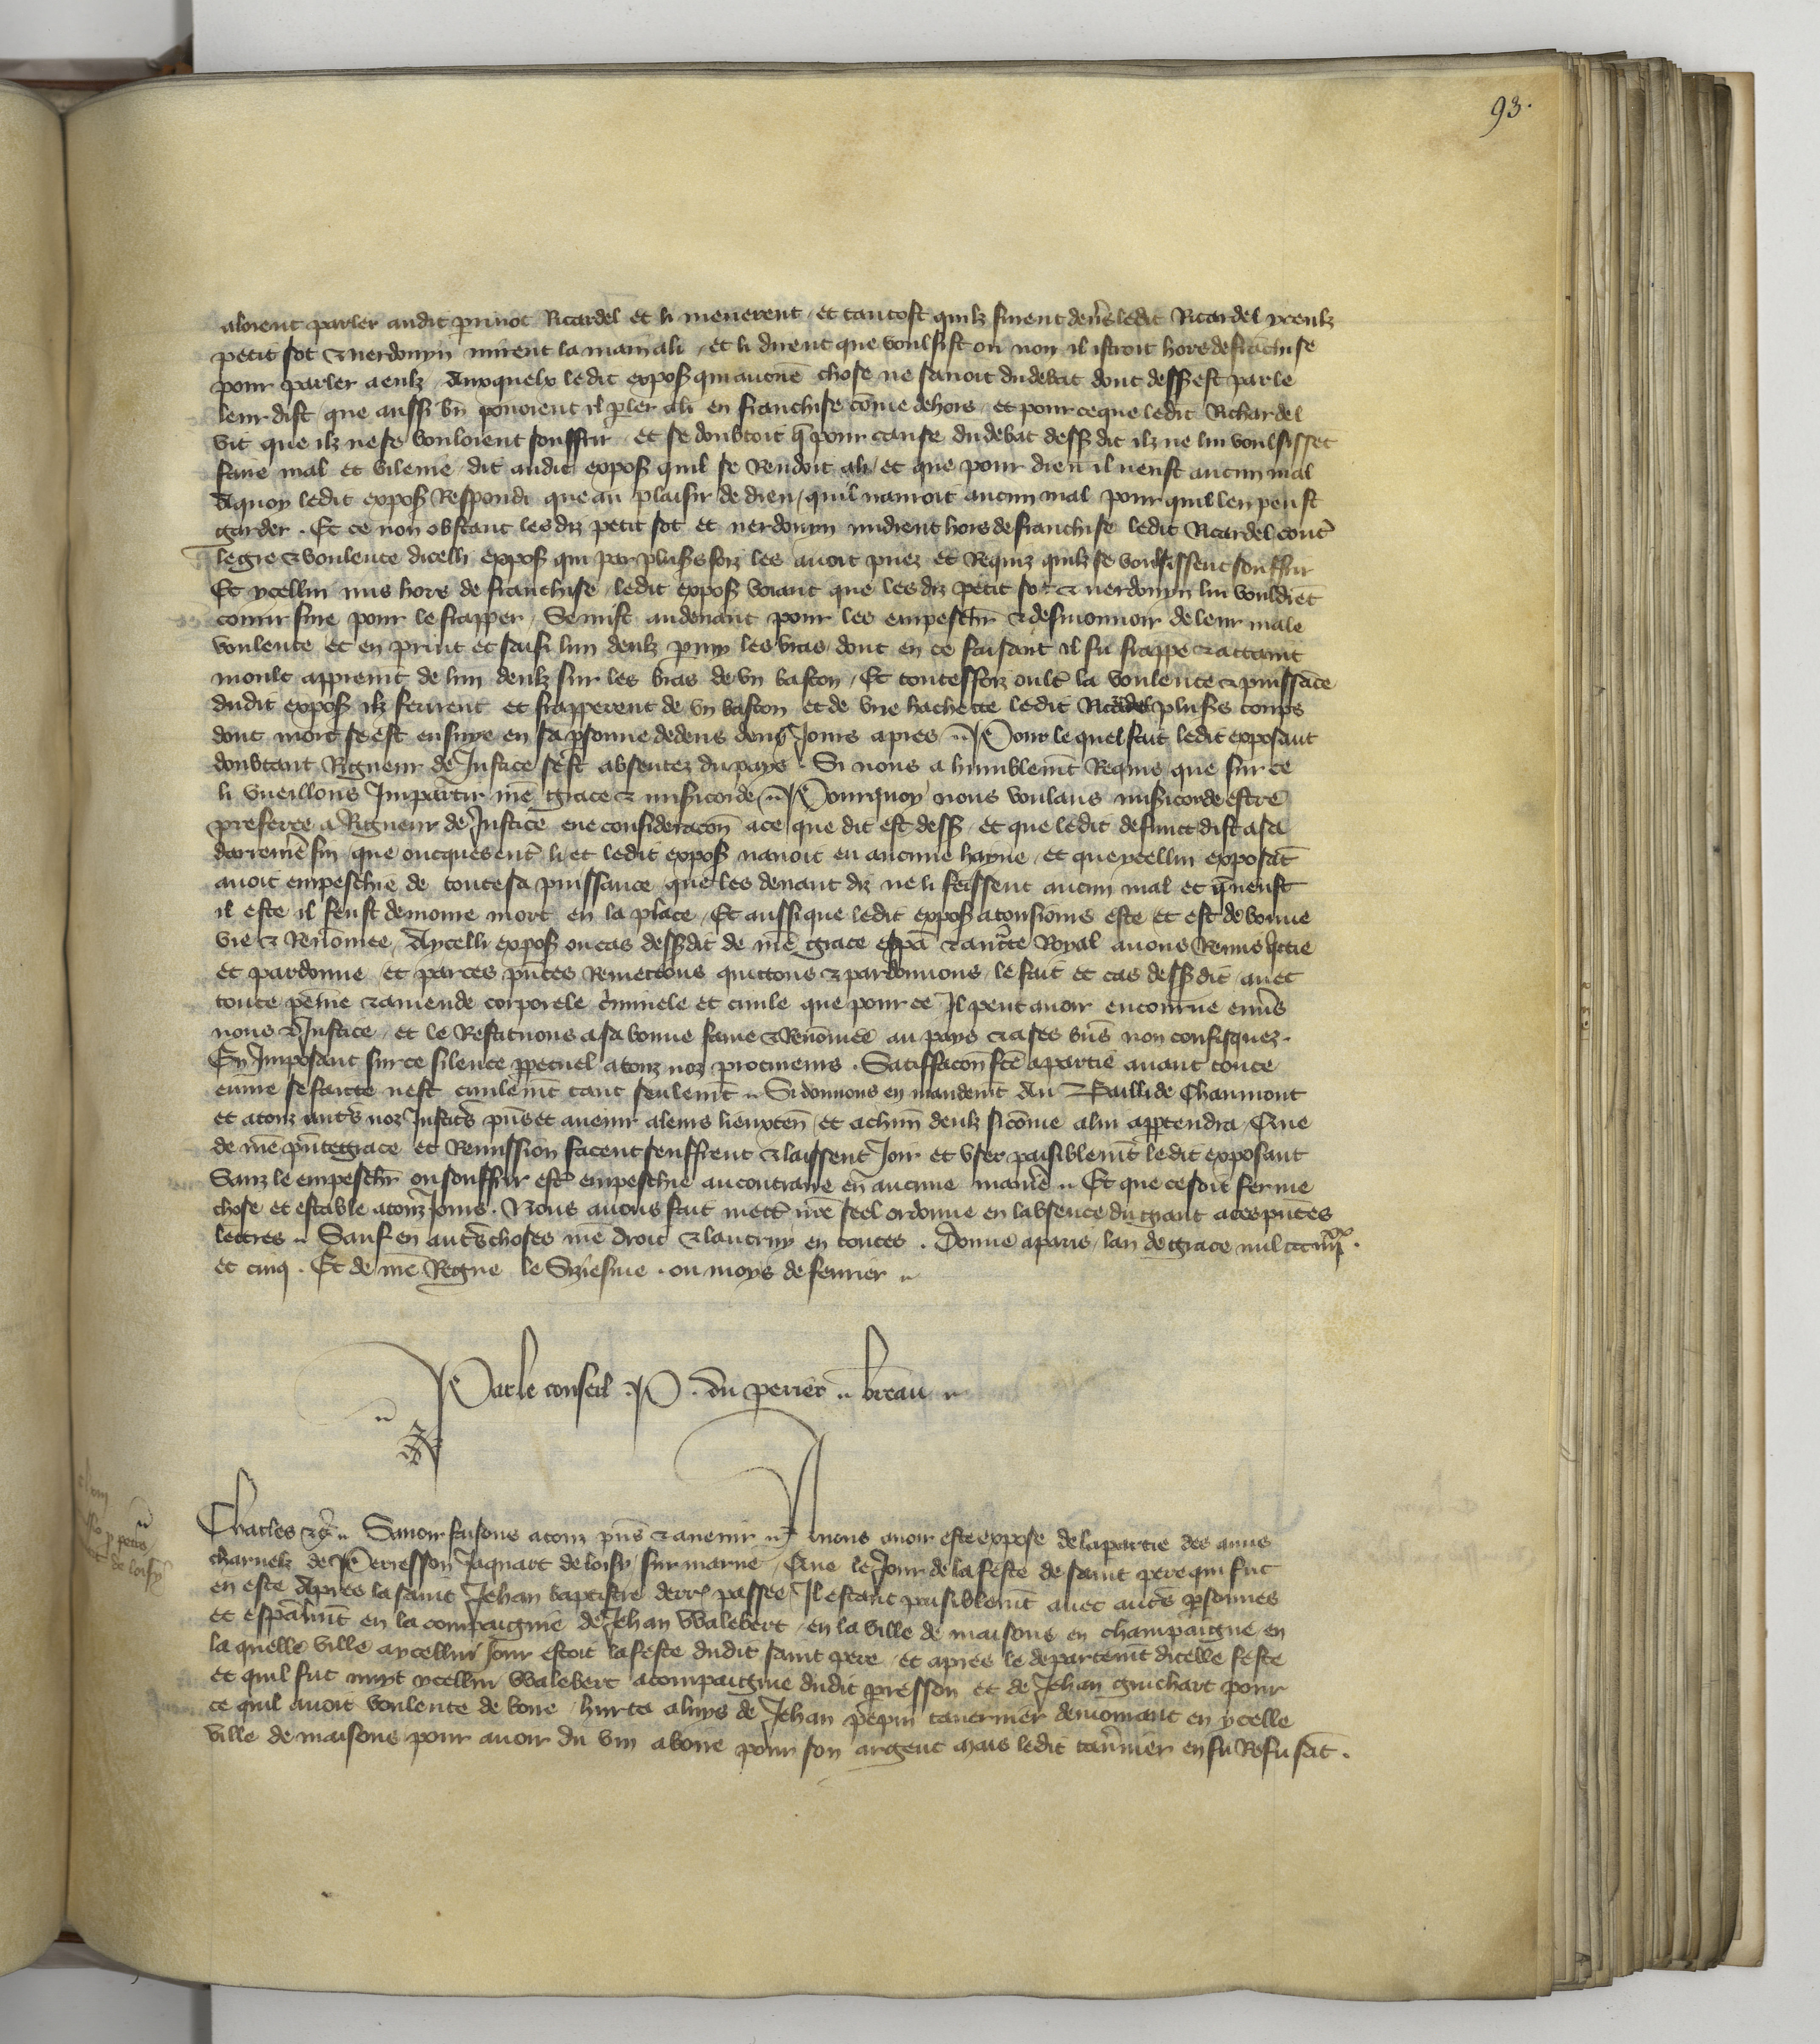 93.
aloient parler audit prinot Ricardel et li menerent / et tantost quilz furent deuers ledit Ricardel yceulz
petit sot & nerdonyn mirent la main a li / et li dirent que voulsist ou non il istroit hors de franchise
pour parler a eulz / Auxquelx ledit expos qui aucune chose ne sauoit du debat dont dess est parle
leur dist / que aussi bn pouoient il pler a li en franchise come dehors / et pour ce que ledit Richardel
vit que ilz ne se vouloient souffrir / et se doubtoit q pour cause du debat dess dit ilz ne lui voulsisset
faire mal et vilenie / dit audit expos quil se Rendoit a li / et que pour dieu il neust aucun mal
Aquoy ledit expos Respondi que au plaisir de dieu / quil nauroit aucun mal pour quil len peust
garder . Et ce non obstant les diz petit sot et nerdonyn mirent hors de franchise ledit Ricardel contr
le gre & voulente dicelli expos qui par pluss foiz les auoit priez et Requiz quilz se voulsissent souffrir
Et ycellui mis hors de franchise / ledit expos voiant que les diz petit sot & nerdonyn lui vouldret
courir sure pour le frapper / Se mist au deuant pour les empeschr & desmouuoir de leur male
voulente et en print et saisi lun deulz pmy les bras / dont en ce faisant il fu frappe & attaint
moult appremt de lun deulz sur les bras de vn baston / Et toutesfoiz oultr la voulente & puissance
dudit expos ilz ferirent et frapperent de vn baston et de vne hachette ledit Ricardel pluss coups
dont mort sest ensuye en sa psonne dedens deux Jours apres .. Pour le quel fait ledit exposant
doubtant Rigueur de Justice sest absentez du pays . Si nous a humblemt Requis que sur ce
li vueillons Impartir nre grace & misicorde .. Pourquoy nous voulans misicorde estre
preferee a Rigueur de Justice eue consideracon a ce que dit est dess / et que ledit defunct dist a sa
darreniere fin / que oncques entr li et ledit expos nauoit eu aucune hayne / et que ycellui exposat
auoit empeschie de toute sa puissance que les deuant diz ne li feissent aucun mal et q neust
il este il feust demoure mort en la place / Et aussi que ledit expos a tousiours este et est de bonne
vie & Renomee / Aycelli expos ou cas dess dit de nre grace espa & auctte Royal auons Remis quictie
et pardonne / et par ces pntes Remettons quittons & pardonnons / le fait et cas dess dit / auec
toute peine & amende corporele criminele et ciuile que pour ce Il peut auoir encourue enuers
nous & Justice / et le Restituons a sa bonne fame & Renomee au pays & a ses biens non confisquez .
En Imposant sur ce silence ppetuel a touz noz procureurs . Satisfacon fte a partie auant toute
euure se faicte nest ciuilemt tant seulemt .. Si donnons en mandemt Au Bailli de Chaumont
et a touz autrs noz Justicrs pns et auenir / a leurs lieuxten / et a chun deulz si come a lui appartendra / Que
de nre pnte grace et Remission facent seuffrent & laissent Joir et vser paisiblemt ledit exposant
Sanz le empeschr ou souffrir estr empeschie au contraire en aucune maniere .. Et que ce soit ferme
chose et estable a touz Jours . Nous auons fait mettr nre seel ordonne en labsence du grant a ces pntes
lettres .. Sauf en autrs choses nre droit & lautruy en toutes . Donne a paris / lan de grace mil cccmxx .
et cinq . Et de nre Regne le Siziesme . ou moys de feurier ..
Par le conseil . P . du perier .. breau ..
Charles &c .. Sauoir faisons a touz pns & auenir .. A nous auoir este expose de la partie des amis
charnelz de Perresson Jaquart de loisy sur marne / Que le Jour de la feste de saint pere qui fut
en este Apres la saint Jehan baptistre derr passee Il estant paisiblemt auec autrs psonnes
et espalmt en la compaignie de Jehan Walebert / en la ville de maisons en champaigne en
la quelle ville a ycellui Jour estoit la feste dudit saint pere / et apres le departemt dicelle feste
et quil fut nuyt ycellui Walebert acompaignie dudit presson et de Jehan guichart pour
ce quil auoit voulente de boire / hurta a luys de Jehan prepin tauernier demourant en ycelle
ville de maisons pour auoir du vin a boire pour son argent mais ledit tauernier en fu Refusat .